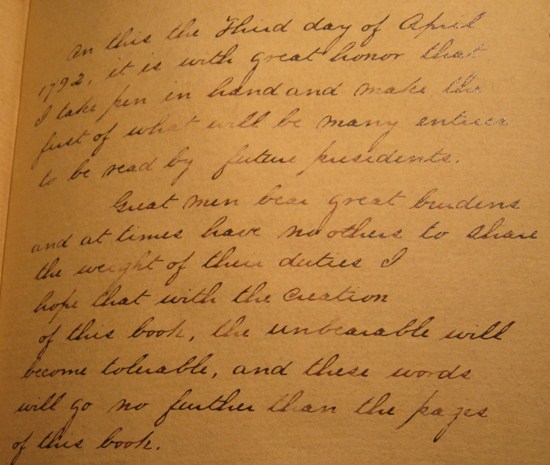 On this the Third day of April
1792, it is with great honor that
I take pen in hand and make the
first of what will be many entries
to be read by future presidents.
Great men bear great burdens
and at times have no others to share
the weight of their duties I
hope that with the creation
of this book, the unbearable will
become tolerable, and these words
will go no further than the pages
of this book.